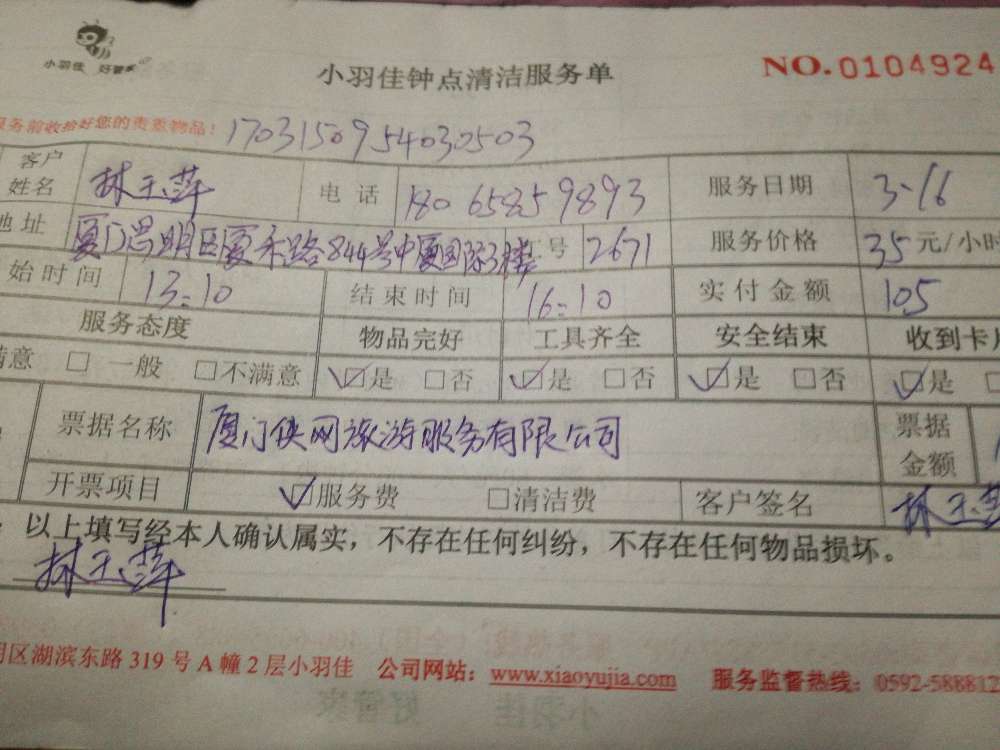 小羽佳 好管家
小羽佳钟点清洁服务单
NO.0104924
服务前收拾好您的贵重物品！
1703150954030503
客户姓名 林玉萍 电话 18065859893 服务日期 3-16
地址 厦门思明区厦禾路844号中厦国际3楼 工号 2671 服务价格 35元/小时
始时间 13:10 结束时间 16:10 实付金额 105
服务态度 物品完好 工具齐全 安全结束 收到卡
满意 □一般 □不满意 ☑是 □否 ☑是 □否 ☑是 □否 ☑是 □
票据名称 厦门侠网旅游服务有限公司 票据金额
开票项目 ☑服务费 □清洁费 客户签名 林玉萍
以上填写经本人确认属实，不存在任何纠纷，不存在任何物品损坏。
林玉萍
明区湖滨东路319号A幢2层小羽佳 公司网站：www.xiaoyujia.com 服务监督热线：0592-588812